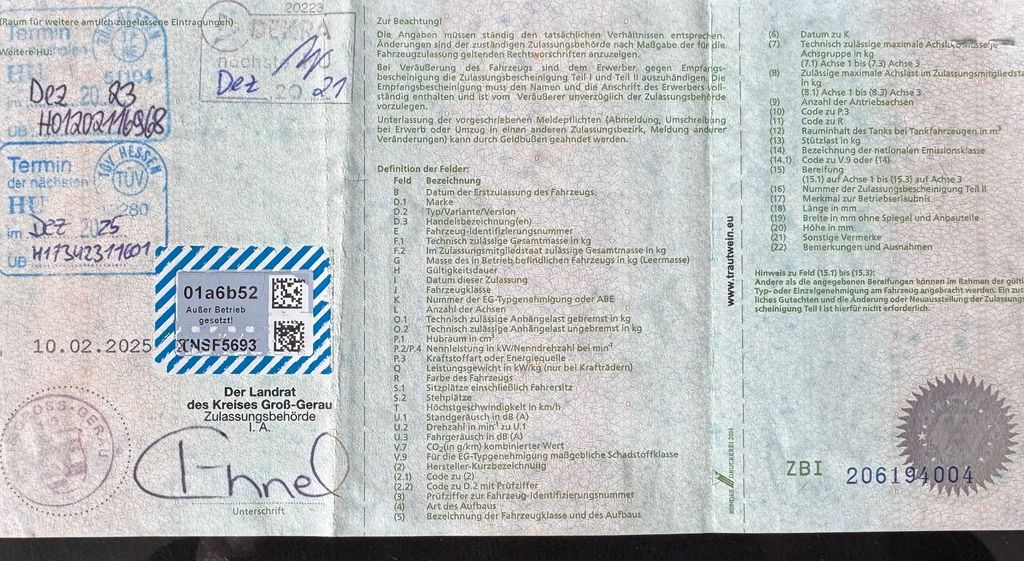 (Raum für weitere amtlich zugelassene Eintragungen)
Termin
Weitere HU:
HU
im Dez 2023
ÜB H01202116968
Termin
der nächsten
HU
im Dez 2025
ÜB H17342311601
TÜV HESSEN
TÜV
20223
DEKRA
nächste
Dez 2021
01a6b52
Außer Betrieb
gesetzt!
10.02.2025
INSF5693
Der Landrat
des Kreises Groß-Gerau
Zulassungsbehörde
I. A.
Unterschrift
Zur Beachtung!
Die Angaben müssen ständig den tatsächlichen Verhältnissen entsprechen.
Änderungen sind der zuständigen Zulassungsbehörde nach Maßgabe der für die
Fahrzeugzulassung geltenden Rechtsvorschriften anzuzeigen.
Bei Veräußerung des Fahrzeugs sind dem Erwerber gegen Empfangs-
bescheinigung die Zulassungsbescheinigung Teil I und Teil II auszuhändigen. Die
Empfangsbescheinigung muss den Namen und die Anschrift des Erwerbers voll-
ständig enthalten und ist vom Veräußerer unverzüglich der Zulassungsbehörde
vorzulegen.
Unterlassung der vorgeschriebenen Meldepflichten (Abmeldung, Umschreibung
bei Erwerb oder Umzug in einen anderen Zulassungsbezirk, Meldung anderer
Veränderungen) kann durch Geldbußen geahndet werden.
Definition der Felder:
Feld Bezeichnung
B Datum der Erstzulassung des Fahrzeugs
D.1 Marke
D.2 Typ/Variante/Version
D.3 Handelsbezeichnung(en)
E Fahrzeug-Identifizierungsnummer
F.1 Technisch zulässige Gesamtmasse in kg
F.2 Im Zulassungsmitgliedstaat zulässige Gesamtmasse in kg
G Masse des in Betrieb befindlichen Fahrzeugs in kg (Leermasse)
H Gültigkeitsdauer
I Datum dieser Zulassung
J Fahrzeugklasse
K Nummer der EG-Typgenehmigung oder ABE
L Anzahl der Achsen
O.1 Technisch zulässige Anhängelast gebremst in kg
O.2 Technisch zulässige Anhängelast ungebremst in kg
P.1 Hubraum in cm³
P.2/P.4 Nennleistung in kW/Nenndrehzahl bei min⁻¹
P.3 Kraftstoffart oder Energiequelle
Q Leistungsgewicht in kW/kg (nur bei Krafträdern)
R Farbe des Fahrzeugs
S.1 Sitzplätze einschließlich Fahrersitz
S.2 Stehplätze
T Höchstgeschwindigkeit in km/h
U.1 Standgeräusch in dB (A)
U.2 Drehzahl in min⁻¹ zu U.1
U.3 Fahrgeräusch in dB (A)
V.7 CO₂ (in g/km) kombinierter Wert
V.9 Für die EG-Typgenehmigung maßgebliche Schadstoffklasse
(2) Hersteller-Kurzbezeichnung
(2.1) Code zu (2)
(2.2) Code zu D.2 mit Prüfziffer
(3) Prüfziffer zur Fahrzeug-Identifizierungsnummer
(4) Art des Aufbaus
(5) Bezeichnung der Fahrzeugklasse und des Aufbaus
www.trautwein.eu
(6) Datum zu K
(7) Technisch zulässige maximale Achslast
Achsgruppe in kg
(7.1) Achse 1 bis (7.3) Achse 3
(8) Zulässige maximale Achslast im Zulassungsmitgliedsta
in kg
(8.1) Achse 1 bis (8.3) Achse 3
(9) Anzahl der Antriebsachsen
(10) Code zu P.3
(11) Code zu R
(12) Rauminhalt des Tanks bei Tankfahrzeugen in m³
(13) Stützlast in kg
(14) Bezeichnung der nationalen Emissionsklasse
(14.1) Code zu V.9 oder (14)
(15) Bereifung
(15.1) auf Achse 1 bis (15.3) auf Achse 3
(16) Nummer der Zulassungsbescheinigung Teil II
(17) Merkmal zur Betriebserlaubnis
(18) Länge in mm
(19) Breite in mm ohne Spiegel und Anbauteile
(20) Höhe in mm
(21) Sonstige Vermerke
(22) Bemerkungen und Ausnahmen
Hinweis zu Feld (15.1) bis (15.3):
Andere als die angegebenen Bereifungen können im Rahmen der gült
Typ- oder Einzelgenehmigung am Fahrzeug angebracht werden. Ein zus
liches Gutachten und die Änderung oder Neuausstellung der Zulassung
scheinigung Teil I ist hierfür nicht erforderlich.
ZBI 206194004